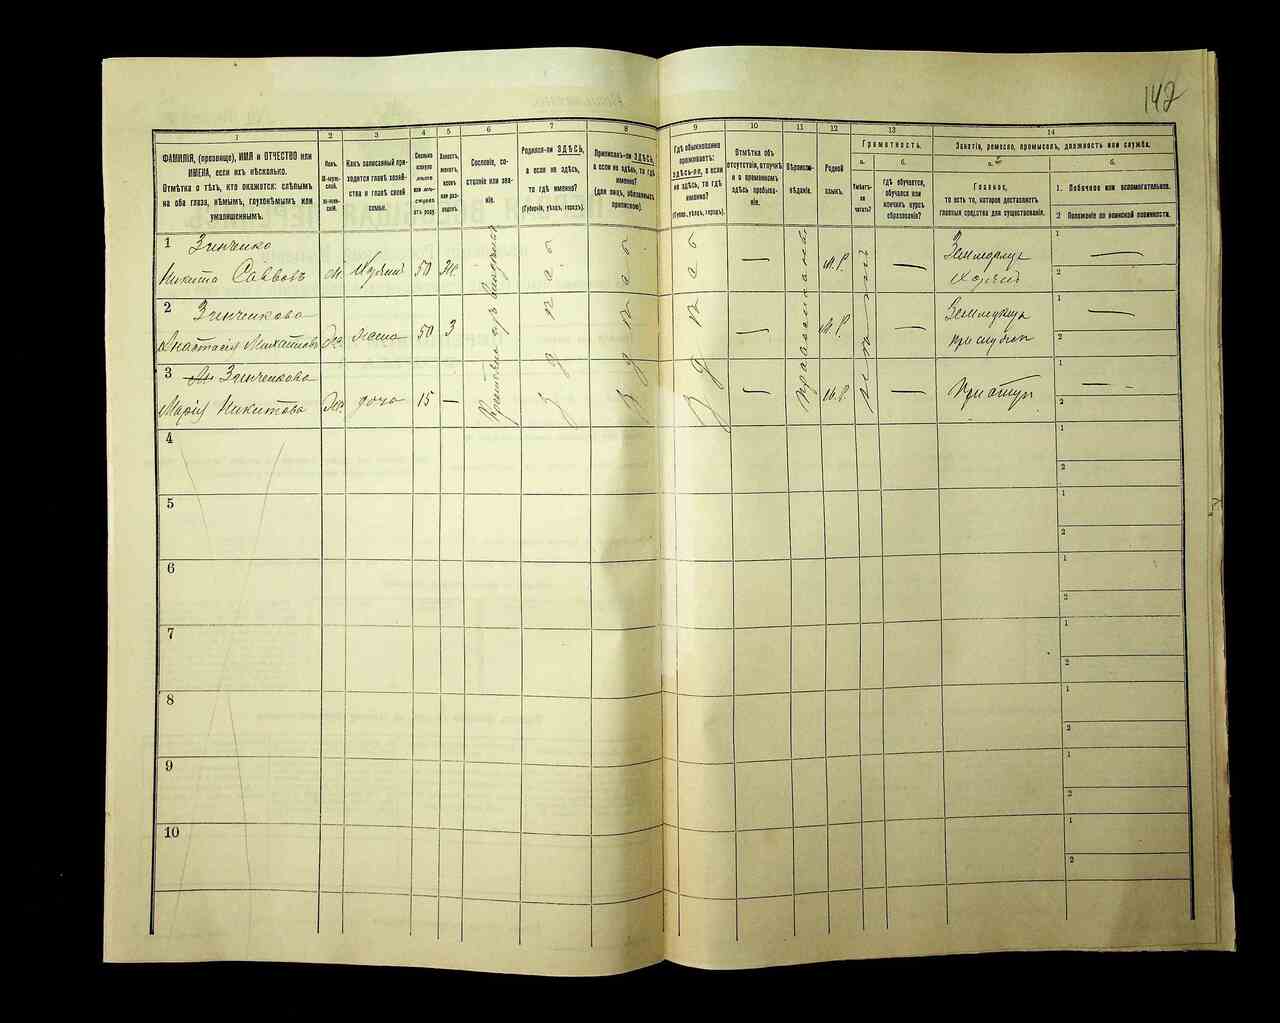 142
1
2
3
4
5
6
7
8
9
10
11
12
13
14
ФАМИЛІЯ, (прозвище), ИМЯ и ОТЧЕСТВО или
ИМЕНА, если ихъ нѣсколько.
Отмѣтка о тѣхъ, кто окажется: слѣпымъ
на оба глаза, нѣмымъ, глухонѣмымъ или
умалишеннымъ.
Полъ.
М-мужской.
Ж-женскій.
Какъ записанный приходится главѣ хозяйства и главѣ своей
семьи.
Сколько
минуло
лѣтъ
или мѣсяцевъ
отъ роду.
Холостъ,
женатъ,
вдовъ
или разведенъ.
Сословіе, состояніе или званіе.
Родился-ли ЗДѢСЬ,
а если не здѣсь,
то гдѣ именно?
(Губернія, уѣздъ, городъ).
Приписанъ-ли ЗДѢСЬ,
а если не здѣсь, то гдѣ
именно?
(для лицъ, обязанныхъ
припискою).
Гдѣ обыкновенно
проживаетъ:
ЗДѢСЬ-ли, а если
не здѣсь, то гдѣ
именно?
(Губернія, уѣздъ, городъ).
Отмѣтка объ
отсутствіи, отлучкѣ
и о временномъ
здѣсь пребываніи.
Вѣроисповѣданіе.
Родной
языкъ.
Грамотность.
а.
Умѣетъ-ли
читать?
б.
гдѣ обучается,
обучался или
кончилъ курсъ
образованія?
Занятіе, ремесло, промыселъ, должность или служба.
а.
Главное,
то есть то, которое доставляетъ
главныя средства для существованія.
б.
1. Побочное или вспомогательное.
2 Положеніе по воинской повинности.
1 Зинченко
Никита Саввовъ м. 50 Ж. — М.Р. —
1 —
2
2 Зинченкова
Анастасія Михайлова же. жена 50 3 — М.Р. —
1 —
2
3 Зинченкова
Марія Никитова же. доч 15 — — М.Р. —
1 —
2
Здѣсь
Здѣсь
Здѣсь
православнаго
нетъ
4
1
2
5
1
2
6
1
2
7
1
2
8
1
2
9
1
2
10
1
2